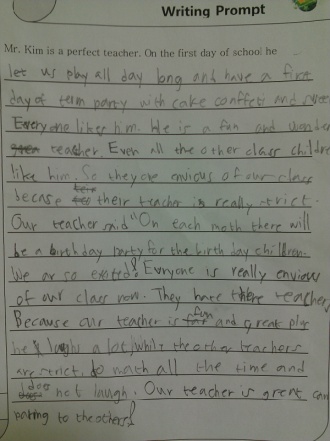 Writing Prompt
Mr. Kim is a perfect teacher. On the first day of school he
let us play all day long and have a first
day of term party with cake conffets and
Everyone likes him. He is a fun and
teacher Even all the other class
like him. So they are envious of our class
becase their teacher is really strict.
Our teacher said "On each moth there will
be a birthday party for the birth day children.
We ar so exsited!" Everyone is really
of our class now. They hate there
Because our teacher is fun and great plus
he laughs a lot while the other teachers
are strict, do math all the time and
does not laugh. Our teacher is great com
paring to the others!